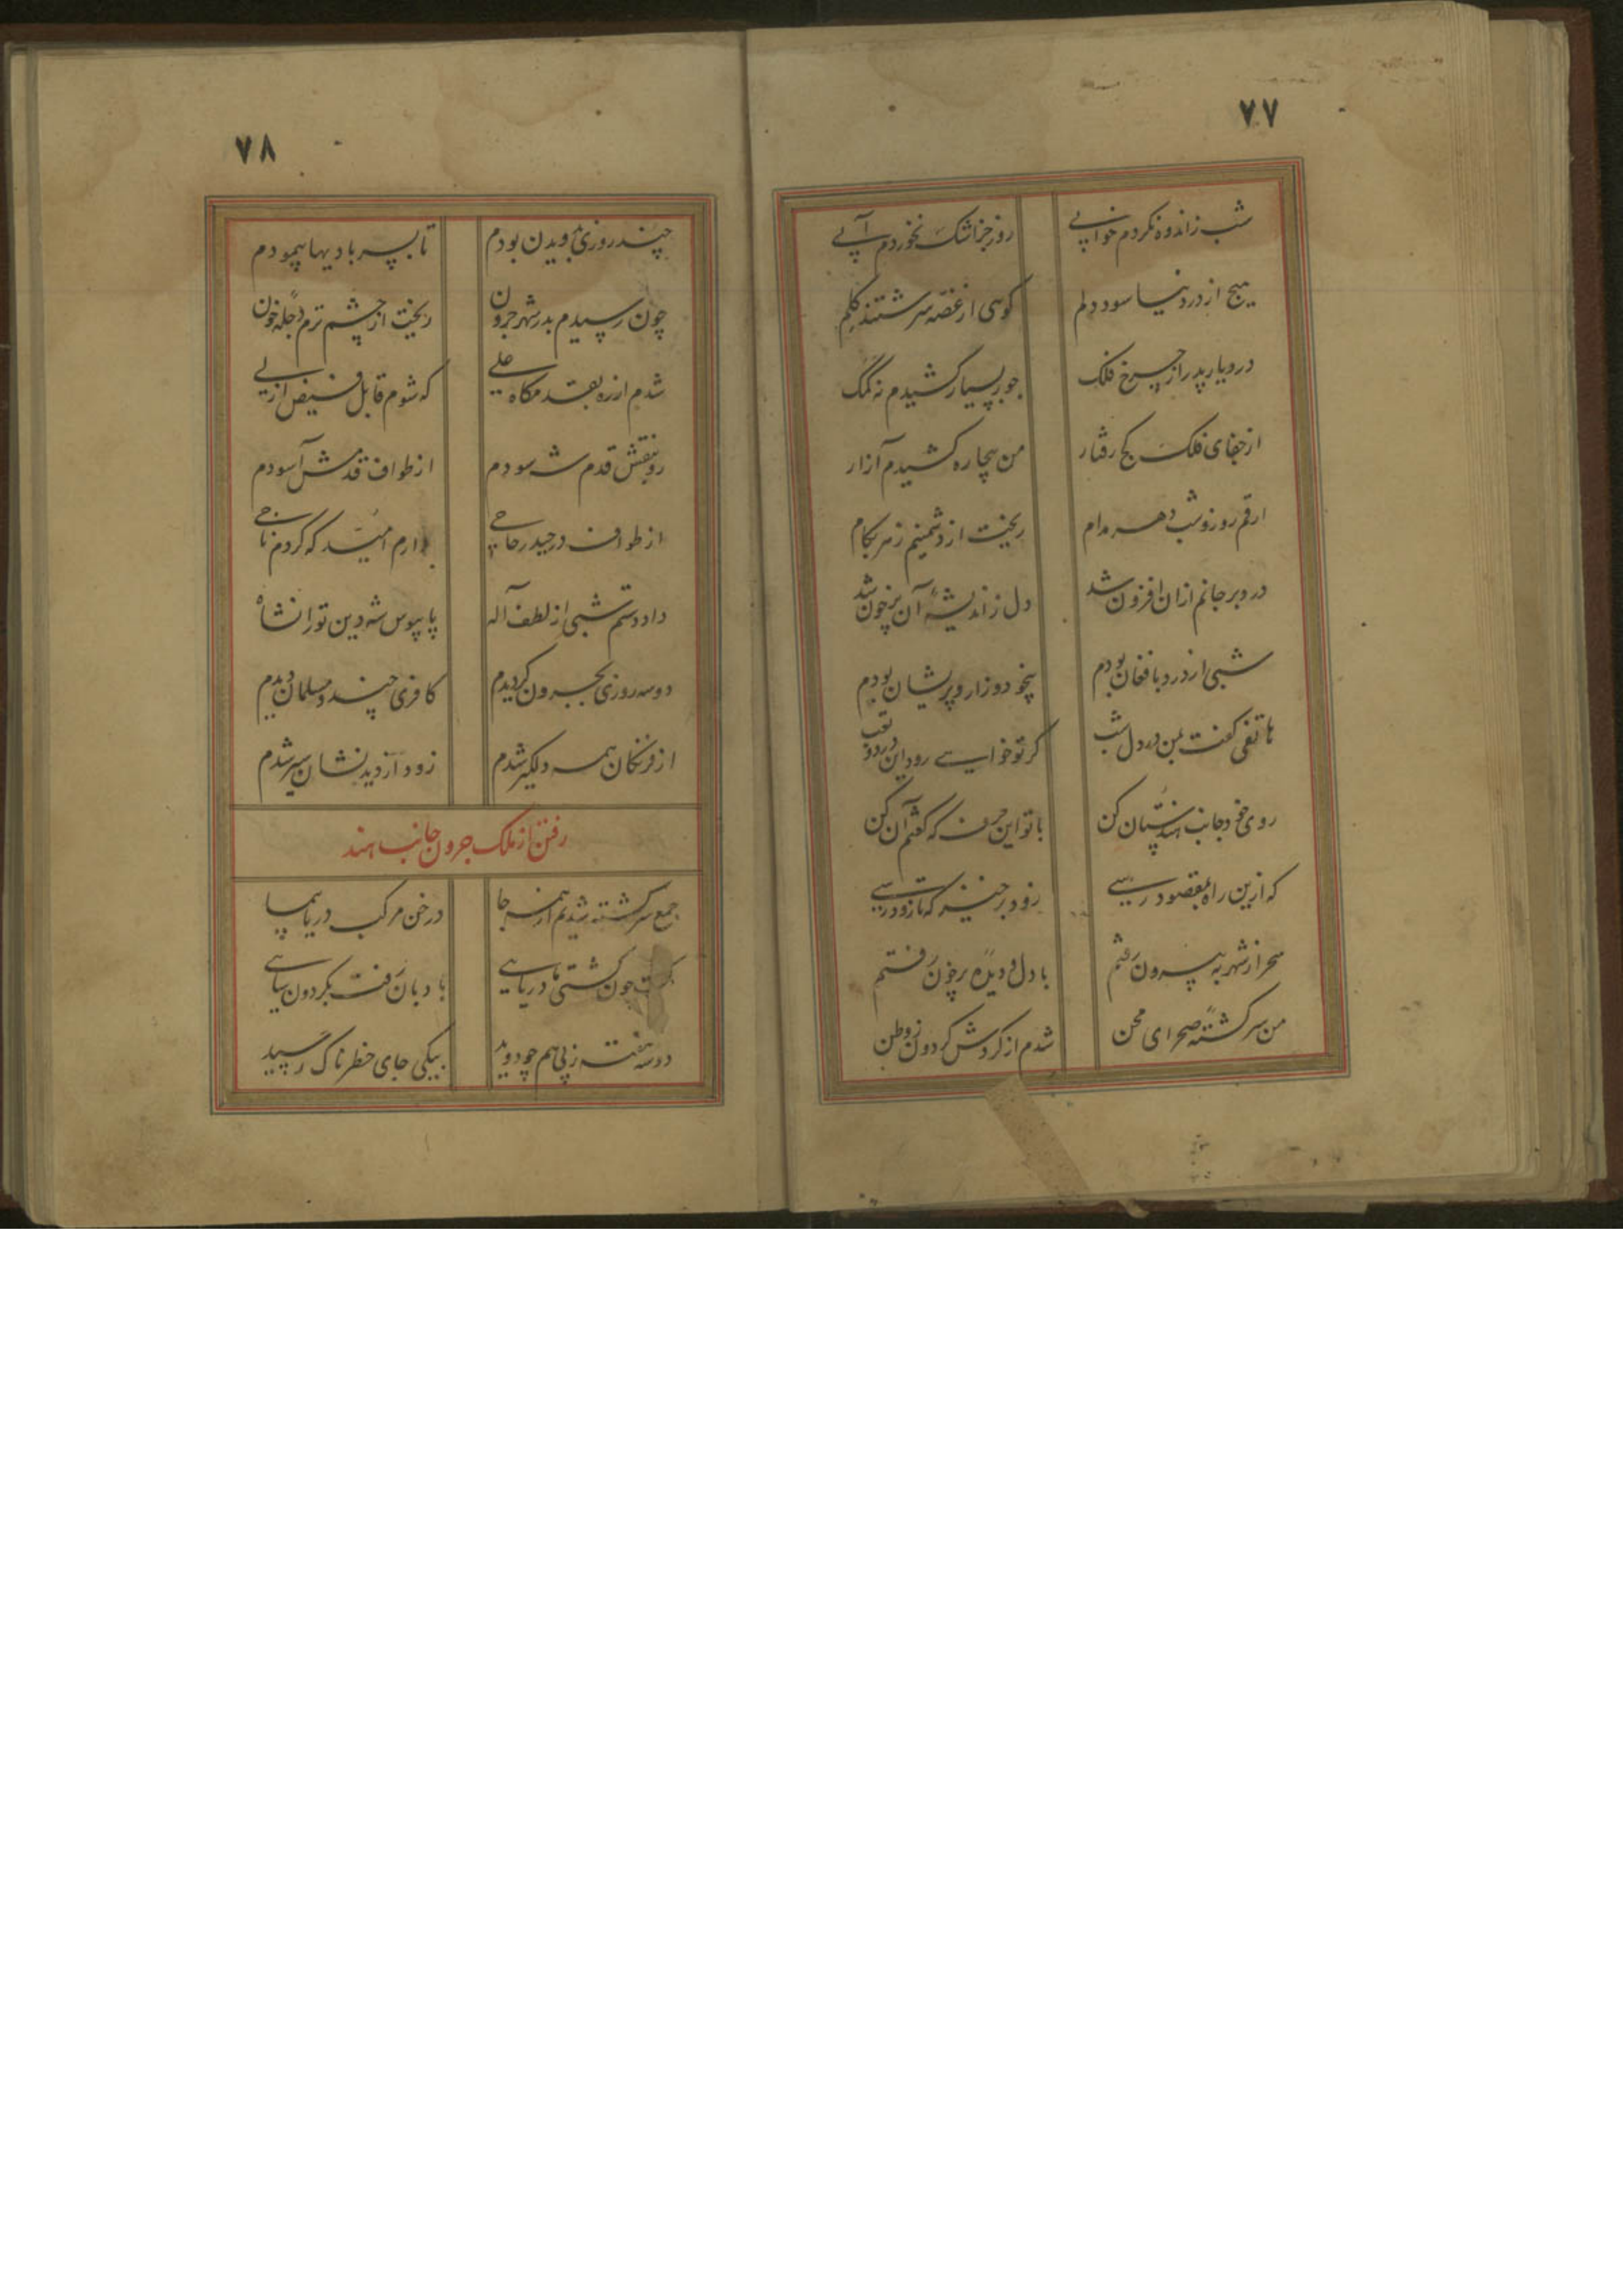 ۷۷
شب ز اندوه نکردم خوابی روز جز اشک نخوردم آبی
هیچ از درد نیاسود دلم گویی از غصه سرشتند گلم
در دیار پدر از چرخ فلک جور بسیار کشیدم نه کمک
از جفای فلک کج رفتار من بیچاره کشیدم آزار
ارقم روز و شب دهر مدام ریخت از دشمنیم زهر بکام
درد بر جانم ازان افزون شد دل ز اندیشهٔ آن پرخون شد
شبی از درد بافغان بودم بیخود و زار و پریشان بودم
هاتفی گفت بمن در دل شب گر تو خواهی روی از درد و تعب
روی خود جانب هندستان کن با تو این حرف که گفتم آن کن
که ازین راه بمقصود رسی زود برخیز که تا زود رسی
سحر از شهر به بیرون رفتم با دل و دیدهٔ پرخون رفتم
من سرکشتهٔ صحرای محن شدم از کردش کردون ز وطن
۷۸
چند روزی بدویدن بودم تا بسر بادیها پیمودم
چون رسیدم بدر شهر جرون ریخت از چشم ترم دجلهٔ خون
شدم از ره بقدمکاه علی که شوم قابل فیض ازلی
رو بنقش قدم شه سودم از طواف قدمش آسودم
از طواف در حیدر حاجی دارم امید که کردم ناجی
داد دستم شبی از لطف آله پابوس شه دین تورانشاه
دو سه روزی بجرون کردیدم کافری چند و مسلمان دیدم
از فرنکان همه دلکیر شدم زود از دیدنشان سیر شدم
رفتن از ملک جرون جانب هند
جمع سرکشته شدیم از همه جا در خن مرکب دریا پیما
چون کشتی ما دریایی بادبان رفت بکردون سایی
دو سه هفته ز پی هم چو دوید بیکی جای خطرناک رسید